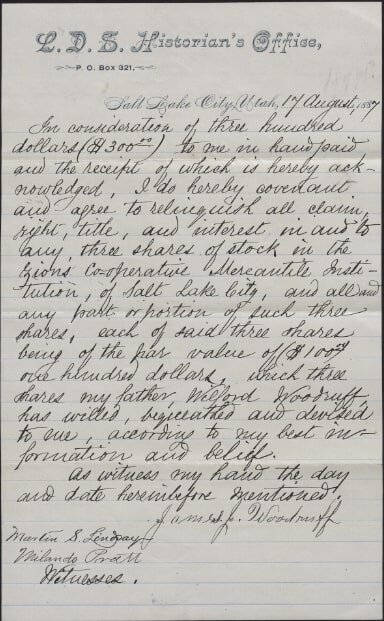 L. D. S. Historian's Office,
P. O. Box 321,
Salt Lake City, Utah, 17 August, 1887
In consideration of three hundred
dollars ($300.00) to me in hand paid
and the receipt of which is hereby ack-
nowledged, I do hereby covenant
and agree to relinquish all claim,
right, title, and interest in and to
any three shares of stock in the
Zions Co-operative Mercantile Insti-
tution, of Salt Lake City, and all and
any part or portion of such three
shares, each of said three shares
being of the par value of ($100.00)
one hundred dollars, which three
shares my father, Wilford Woodruff,
has willed, bequeathed and devised
to me, according to my best in-
formation and belief.
As witness my hand the day
and date hereinbefore mentioned.
James J. Woodruff
Martin S. Lindsay
Milando Pratt
Witnesses.